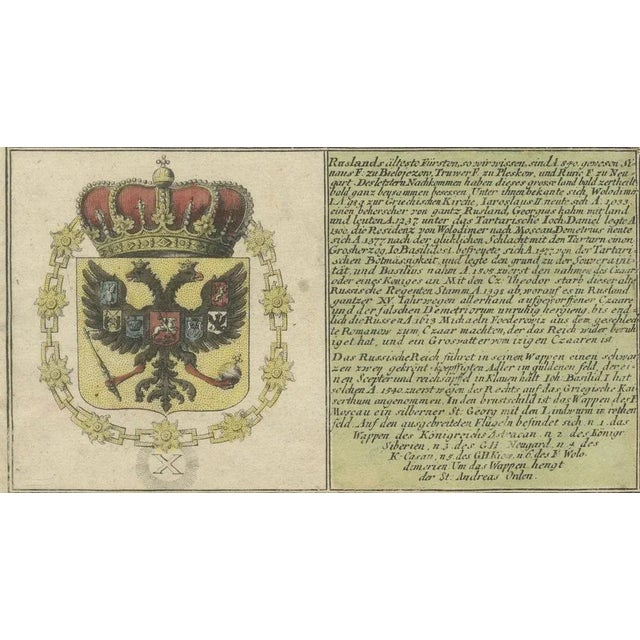 Ruslands älteste Fürsten, so wir wissen, sind A. 840. gewesen, Si-
naus F. zu Bielojezory, Truwor F. zu Pleskow, und Ruric F. zu Neu-
gart. Des letztern Nachkommen haben dieses grosse land bald zertheilt
bald ganz beysammen besessen. Unter ihnen bekante sich, Wolodimir
I. A. 989 zur Griechischen Kirche, Iaroslaus II nente sich A. 1033
einen beherscher von gantz Rusland, Georgius kahm mit land
und leuten A. 1237 unter das Tartarische Ioch, Daniel legte A.
1300 die Residenz von Wolodimer nach Moscau, Demetrius nente
sich A. 1377 nach der glüklichen Schlacht mit den Tartarn einen
Grosherzog, Io. Basilides I. befreyete sich A. 1477 von der Tartari-
schen Botmässigkeit, und legte den grund zu der Souveraini-
tät, und Basilius nahm A. 1505 zuerst den nahmen des Czaars
oder eines Koniges an. Mit den Cz. Theodor starb dieser alte
Russische Regenten Stamm A. 1598 ab, worauf es in Rusland
gantzer XV. Iahr wegen allerhand aufgeworffener Czaare
und der falschen Demetriorum unruhig hergieng, bis end-
lich die Russen A. 1613 Michaeln Foederowiz aus dem geschlech-
te Romanow zum Czaar machten, der das Reich wider beruh-
iget hat, und ein Grosvatter vom izigen Czaaren ist.
Das Russische Reich führet in seinen Wappen einen schwar-
zen zwey gekrönt-koepffigten Adler im güldenen feld, der ei-
nen Scepter und reichsapffel in Klauen hält. Ioh. Basilid. I. hat
solchen A. 1540. zuerst wegen des Rechts auf das Griegische Kai-
serthum angenommen. In den brustschild ist das Wappen des F.
Moscau ein silberner St. Georg mit den Lindwurm in rothen
feld. Auf den ausgebreiteten Flügeln befindet sich n. 1. das
Wappen des Königreichs Astracan. n. 2. des Königr.
Siberien, n. 3. des G.H. Neugard, n. 4. des
K. Casan, n. 5. des G.H. Kiow, n. 6. des F. Wolo-
dimerien Um das Wappen hengt
der St. Andreas Orden.
X